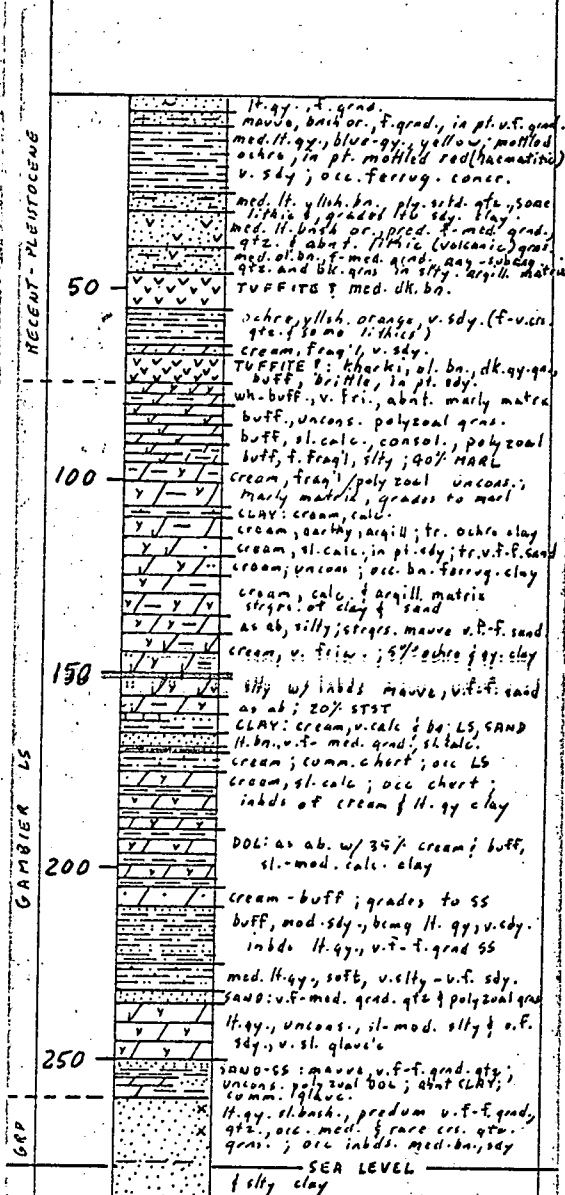 lt. gy., f. grnd.
mauve, bnsh or., f. grnd., in pt. v.f. grnd.
med. lt. gy., blue-gy., yellow; mottled
ochre, in pt. mottled red (haematitic)
v. sdy; occ. ferrug. concr.
med. lt. yllsh. bn., ply. srtd. qtz., some
lithics, grades to sdy. clay.
med. lt. bnsh or., pred. f-med. grnd.,
qtz. & abnt. lithic (volcanic) grns.
med. ol. bn., f-med. grnd., ang-subang.
qtz. and bk. grns in slty. argill. matrix
50
TUFFITE ? med. dk. bn.
ochre, yllsh. orange, v. sdy. (f-v.crs.
qtz. & some lithics)
cream, frag'l, v. sdy.
TUFFITE ?: kharki, ol. bn., dk. gy-grn,
buff, brittle, in pt. sdy.
wh-buff., v. fri., abnt. marly matrx
buff., uncons. polyzoal grns.
buff, sl. calc., consol., polyzoal
buff, f. frag'l, slty; 40% MARL
100
cream, frag'l/polyzoal uncons.,
marly matrix, grades to marl
CLAY: cream, calc.
cream, earthy, argill; tr. ochre clay
cream, sl. calc, in pt. sdy; tr. v.f-f. sand
cream; uncons; occ. bn. ferrug. clay
cream, calc. & argill. matrix
strgrs. of clay & sand
as ab, silty; strgrs. mauve v.f.-f. sand.
cream, v. friw.; 5% ochre & gy. clay
150
slty w/ inbds mauve, v.f-f. sand
as ab; 20% STST
CLAY: cream, v. calc & bn; LS, SAND
lt. bn., v.f- med. grnd., sl. calc.
cream; comm. chert; occ LS
cream, sl. calc; occ chert;
inbds of cream & lt. gy clay
DOL: as ab. w/ 35% cream & buff,
sl.-mod. calc. clay
200
cream - buff; grades to SS
buff, mod. sdy., bcmg lt. gy, v. sdy.
inbds lt. gy., v.f-f. grnd SS
med. lt. gy., soft, v. slty - v.f. sdy.
SAND: v.f-med. grnd. qtz & polyzoal grns
lt. gy., uncons., sl-mod. slty & v.f.
sdy., v. sl. glauc'c
250
SAND-SS: mauve, v.f-f. grnd. qtz;
uncons. polyzoal DOL; abnt CLAY;
comm. glauc.
lt. gy. sl. bnsh., predom v.f-f. grnd,
qtz., occ. med. & rare crs. qtz.
grns.; occ inbds. med. bn., sdy
SEA LEVEL
& slty clay
RECENT - PLEISTOCENE
GAMBIER LS
GRP